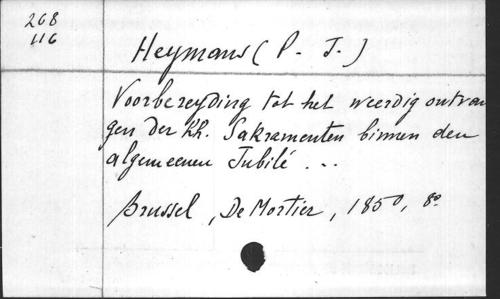 268
116
Heymans (P. J.)
Voorbereyding tot het weerdig ontvan
gen der HH. Sakramenten binnen den
algemeenen Jubilé ...
Brussel, De Mortier, 1850, 8º